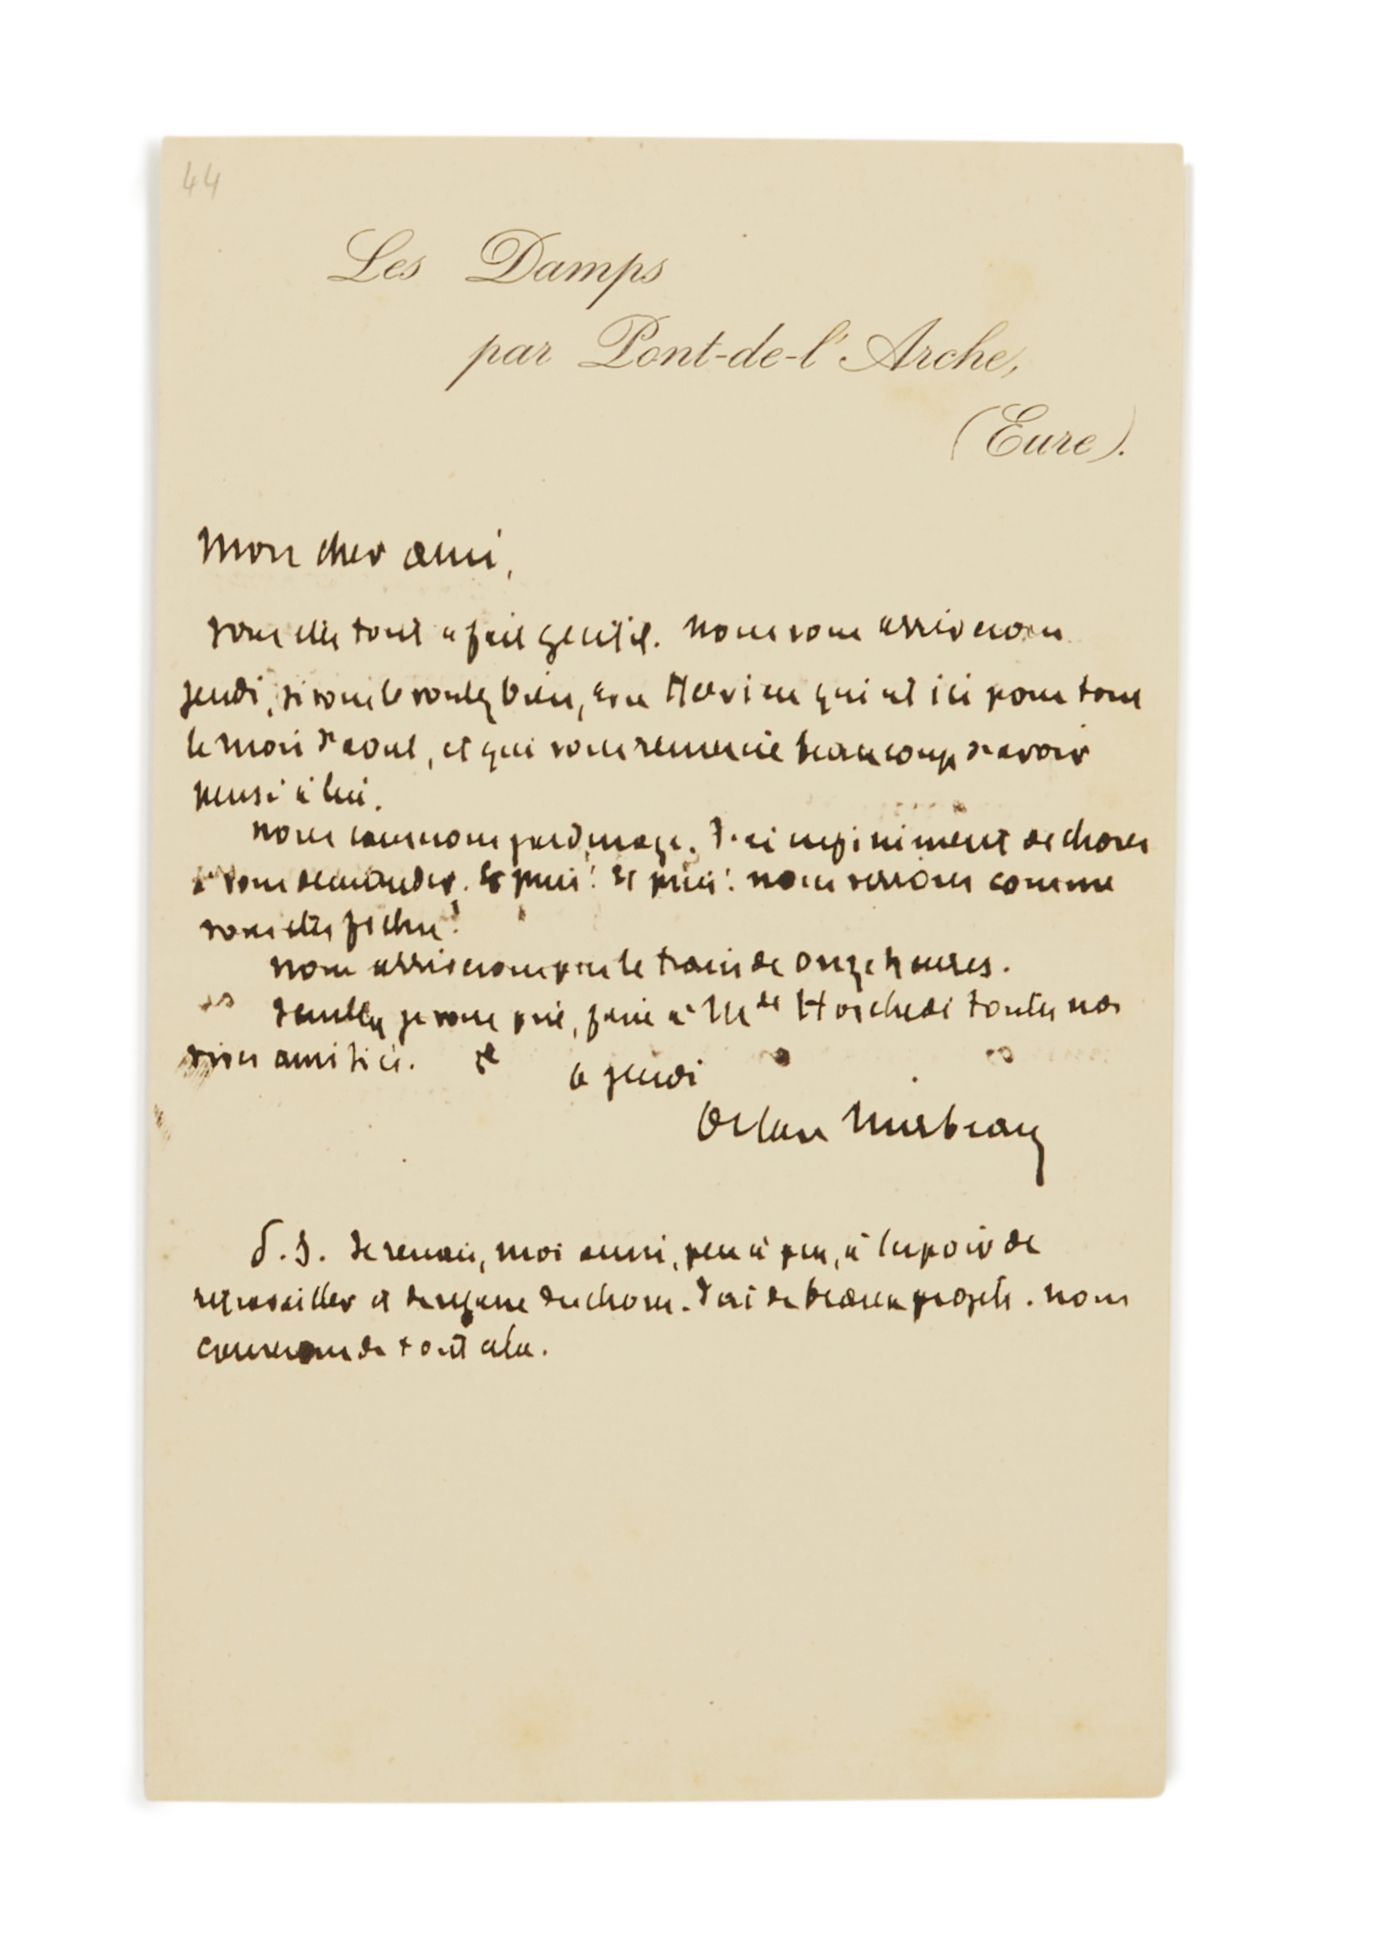 44
Les Damps
par Pont-de-l'Arche,
(Eure).
Mon cher ami,
Vous êtes tout à fait gentil. Nous vous arriverons
jeudi, si vous le voulez bien, avec Hervieu qui est ici pour tout
le mois d'août, et qui vous remercie beaucoup d'avoir
pensé à lui.
Nous causerons jardinage. J'ai infiniment de choses
à vous demander. Et puis! Et puis! nous verrons comme
vous êtes fichu!
Nous arriverons par le train de onze heures.
Veuillez je vous prie, faire à Mde Hoschedé toutes nos
vives amitiés.
à jeudi
Octave Mirbeau
P.S. Je renais, moi aussi, peu à peu, à l'espoir de
retravailler et de refaire des choses. J'ai de beaux projets. Nous
causerons de tout cela.